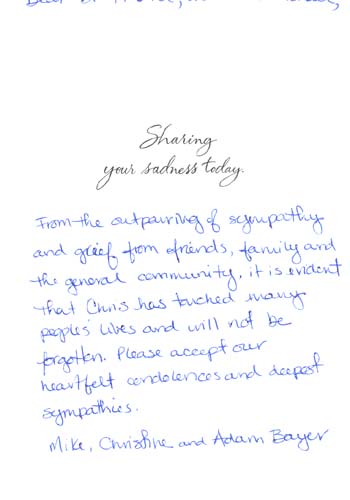 Dear
Sharing
your sadness today.
From the outpouring of sympathy
and grief from friends, family and
the general community, it is evident
that Chris has touched many
peoples' lives and will not be
forgotten. Please accept our
heartfelt condolences and deepest
sympathies.
Mike, Christine and Adam Bayer